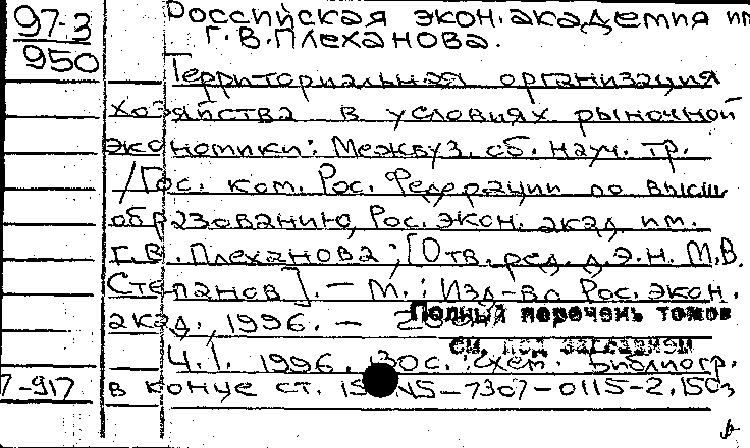 97-3
950
Российская экон. академия им
Г.В.Плеханова.
Территориальная организация
хозяйства в условиях рыночной
экономики: Межвуз. сб. науч. тр.
/Гос. ком. Рос. Федерации по высш
образованию, Рос. экон. акад. им.
Г.В. Плеханова; [Отв. ред. д.э.н. М.В.
Степанов]. — М.: Изд-во Рос. экон.
акад., 1996. —
Полный перечень томов
см. под заглавием
Ч.1. 1996. 130с. схем. Библиогр.
7-917
в конце ст. ISBN5-7307-0115-2.150э